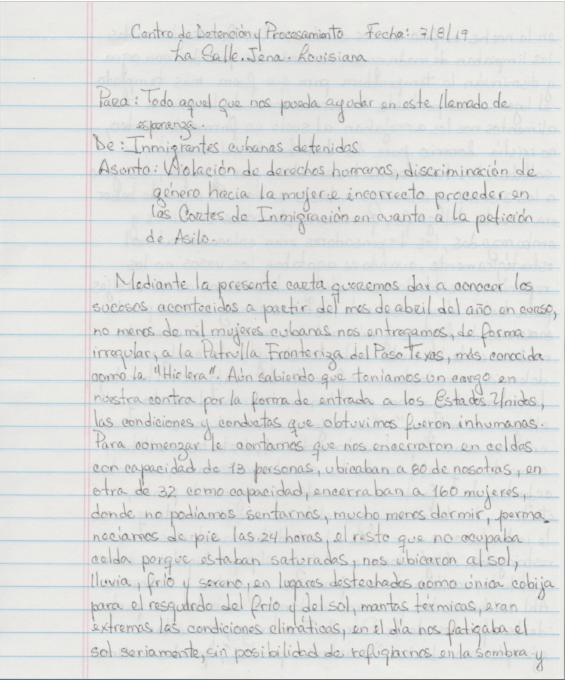 Centro de Detención y Procesamiento Fecha: 7/8/19
La Salle. Jena. Louisiana
Para: Todo aquel que nos pueda ayudar en este llamado de
esperanza.
De: Inmigrantes cubanas detenidas
Asunto: Violación de derechos humanos, discriminación de
género hacia la mujer e incorrecto proceder en
las Cortes de Inmigración en cuanto a la petición
de Asilo.
Mediante la presente carta queremos dar a conocer los
sucesos acontecidos a partir del mes de abril del año en curso,
no menos de mil mujeres cubanas nos entregamos, de forma
irregular, a la Patrulla Fronteriza del Paso Texas, más conocida
como la "Hielera". Aún sabiendo que teníamos un cargo en
nuestra contra por la forma de entrada a los Estados Unidos,
las condiciones y conductas que obtuvimos fueron inhumanas.
Para comenzar le contamos que nos encerraron en celdas
con capacidad de 13 personas, ubicaban a 80 de nosotras, en
otra de 32 como capacidad, encerraban a 160 mujeres,
donde no podíamos sentarnos, mucho menos dormir, perma_
necíamos de pie las 24 horas, el resto que no ocupaba
celda porque estaban saturadas, nos ubicaron al sol,
lluvia, frío y sereno, en lugares destechados como única cobija
para el resguardo del frío y del sol, mantas térmicas, eran
extremas las condiciones climáticas, en el día nos fatigaba el
sol seriamente, sin posibilidad de refugiarnos en la sombra y